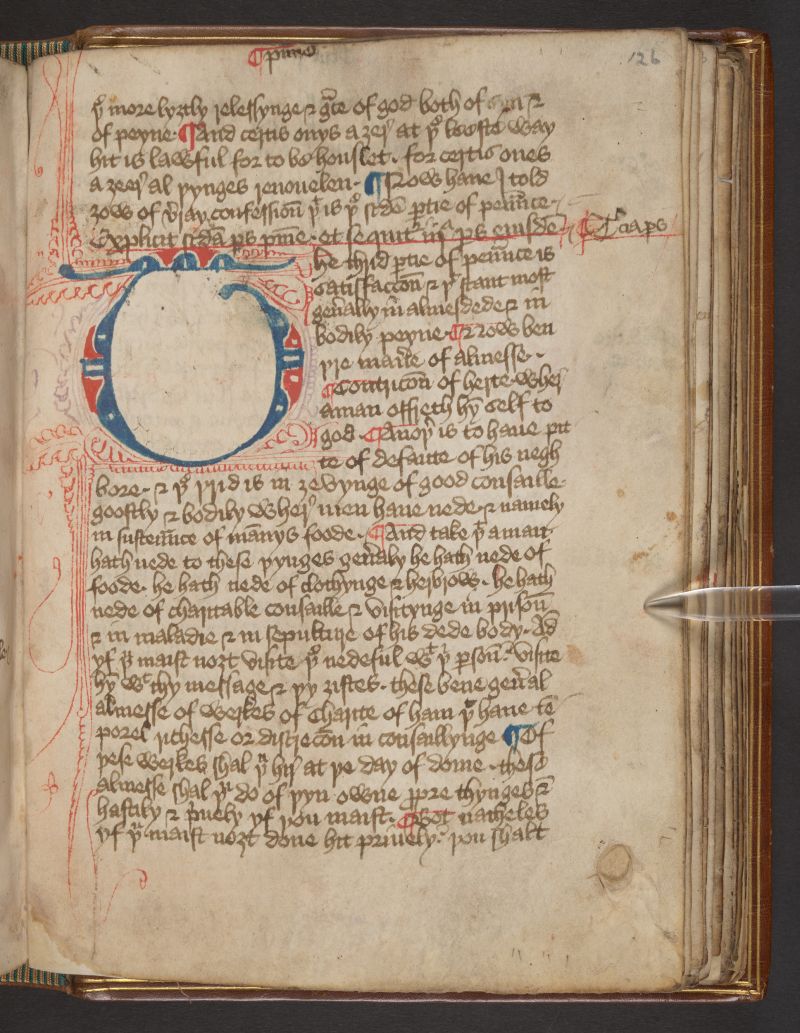 ¶ pime
126
þe more lyztly relessynge & g̃ce of god both of sin &
of peyne. ¶ And certis onys a zer at þe leeste way
hit is lawful for to be houslet. for certis ones
a zeer al þynges renouelen. ¶ Now haue I told
zow of v̾ray confession̄ þt is þe scdē ptie of peniñce.
Explicit scdā ps pnīe. et sequit̾ iija ps eiusdē
¶ Tcia ps
The thrid ptie of peniñce is
satisfaccōn & þt stant most
gen̄ally in almesdede & in
bodily peyne. ¶ Now ben
þre man̄e of almesse.
¶ Contricōn of herte. wher
a man offreth hȳ self to
god. ¶ Anoþr is to haue pit
te of defaute of his negh
bore. & þe þrid is in zevynge of good consaille.
goostly & bodily wher men haue nede. & namely
in susteniñce of mannys foode. ¶ And take þt a man
hath nede to these þynges gen̄aly he hath nede of
foode. he hath nede of clothynge & herbrow. he hath
nede of charitable consaille & visitynge in prison̄
& in maladie & in sepulture of his dede body. Ad̄
yf þu maist nozt visite þe nedeful wt þi pson̄. visite
hȳ wt thy message & þy ziftes. these bene gen̄al
almesse of werkes of charite of ham þt haue tē
porel richesse or discrecōn in consaillynge ¶ Of
þese werkes shal þu hir at þe day of dome. these
almesse shal þu do of þyn owne ppre thynges &
hastily & p̾uely yf þou maist. ¶ Bot natheles
yf þu maist nozt done hit priuely. þou shalt